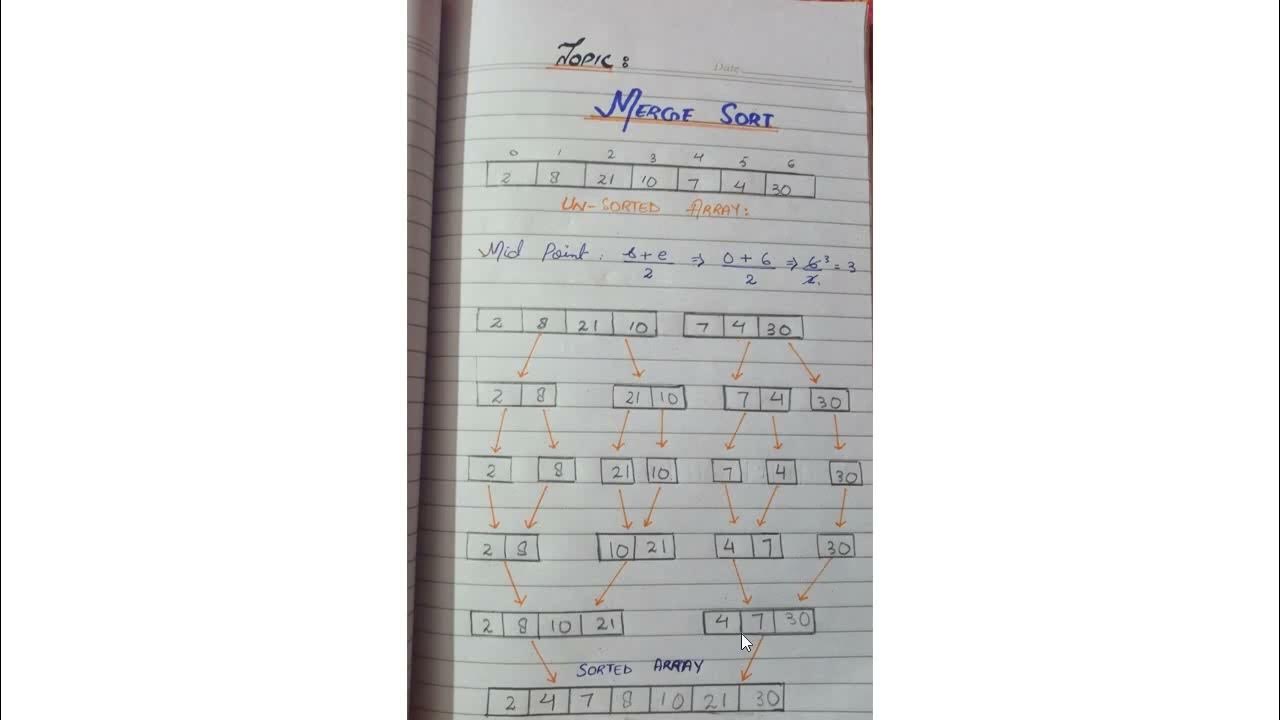 Topic:
Date
Merge Sort
0 1 2 3 4 5 6
2 8 21 10 7 4 30
Un-Sorted Array:
Mid Point: s+e/2 ⇒ 0+6/2 ⇒ 6/2 3 = 3
2 8 21 10 7 4 30
2 8 21 10 7 4 30
2 8 21 10 7 4 30
2 8 10 21 4 7 30
2 8 10 21 4 7 30
Sorted Array
2 4 7 8 10 21 30